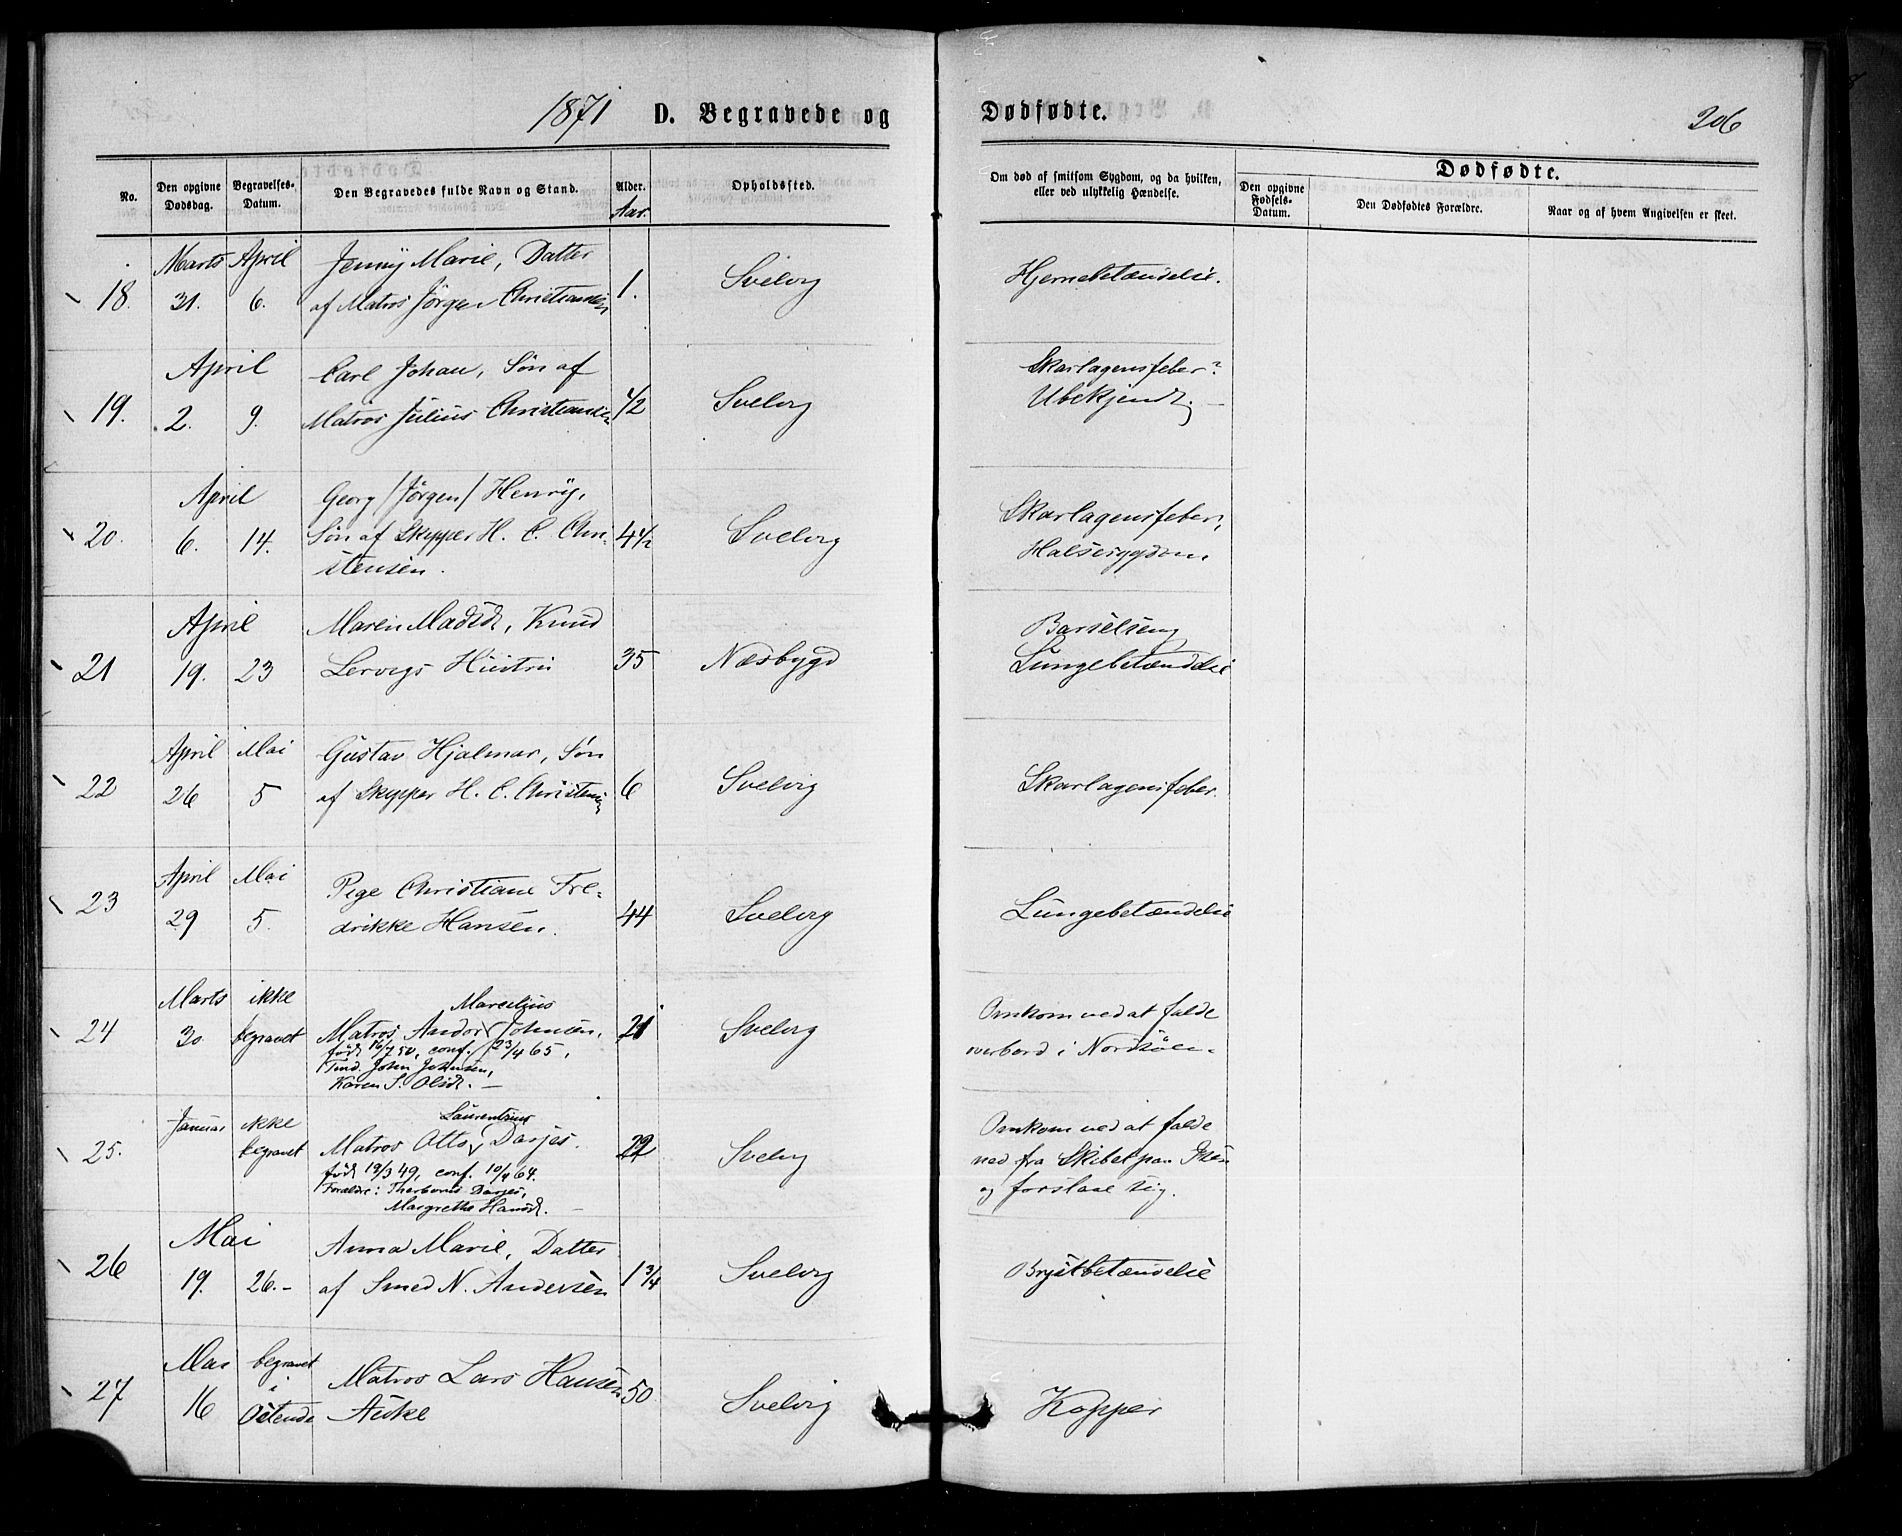 1871 D. Begravede og Dødfødte. 206
No. Den opgivne Dødsdag. Begravelses-Datum. Den Begravedes fulde Navn og Stand. Alder. Aar. Opholdssted. Om død af smitsom Sygdom, og da hvilken, eller ved ulykkelig Hændelse. Dødfødte.
Den opgivne Fødsels-Datum. Den Dødfødtes Forældre. Naar og af hvem Angivelsen er skeet.
Marts April Jenny Marie, Datter
18. 31. 6. af Matros Jörgen Christiansen 1. Svelvig Hjernebetændelse.
April Carl Johan, Søn af Skarlagensfeber?
19. 2. 9. Matros Julius Christiansen 1/2 Svelvig Ubekjendt
April Georg /Jørgen/ Henrÿ, Skarlagensfeber,
20. 6. 14. Søn af Skipper H. C. Chri- 4 1/2 Svelvig Halssygdom
stensen.
April Maren Madsdt, Knud Barselseng
21 19. 23 Lervigs Hustru 35 Næsbygd Lungebetændelse
April Mai Gustav Hjalmar, Søn
22 26 5 af Skipper H. C. Christensen 6 Svelvig Skarlagensfeber.
April Mai Pige Christiane Fre-
23 29 5. drikke Hansen. 44 Svelvig Lungebetændelse
Marts ikke Marcelius Omkom ved at falde
24 30 begravet Matros Andor Johnsen, 21 Svelvig overbord i Nordsøen.
født 16/7 50, conf. 23/4 65,
John Johnsen,
Karen S. Olsdt. —
Januar ikke Laurentius Omkom ved at falde
25. begravet Matros Otto Dorjes. 22 Svelvig ned fra Skibet paa Isen
født 19/3 49, conf. 10/4 64. og forslaae sig.
Forældre: Dorjes,
Margrethe Hansdt. —
Mai Anna Marie, Datter
26 19. 26.- af Smed N. Andersen 1 3/4 Svelvig Brystbetændelse
Mai begravet Matros Lars Hansen
27 16 i Ostende Auke 50 Svelvig Kopper